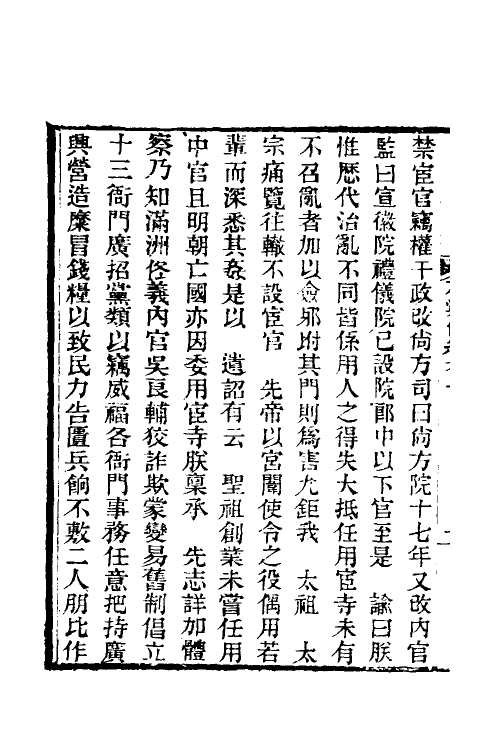 禁宦官竊權干政改尙方司曰尙方院十七年又改內官
監曰宣徽院禮儀院已設院郎中以下官至是　諭曰朕
惟歷代治亂不同皆係用人之得失大抵任用宦寺未有
不召亂者加以僉邪附其門則爲害尤鉅我　太祖　太
宗痛覽往轍不設宦官　先帝以宮闈使令之役偶用若
輩而深悉其姦是以　遺詔有云　聖祖創業未嘗任用
中官且明朝亡國亦因委用宦寺朕稟承　先志詳加體
察乃知滿洲佟義內官吳良輔狡詐欺蒙變易舊制倡立
十三衙門廣招黨類以竊威福各衙門事務任意把持廣
興營造糜冒錢糧以致民力告匱兵餉不敷二人朋比作